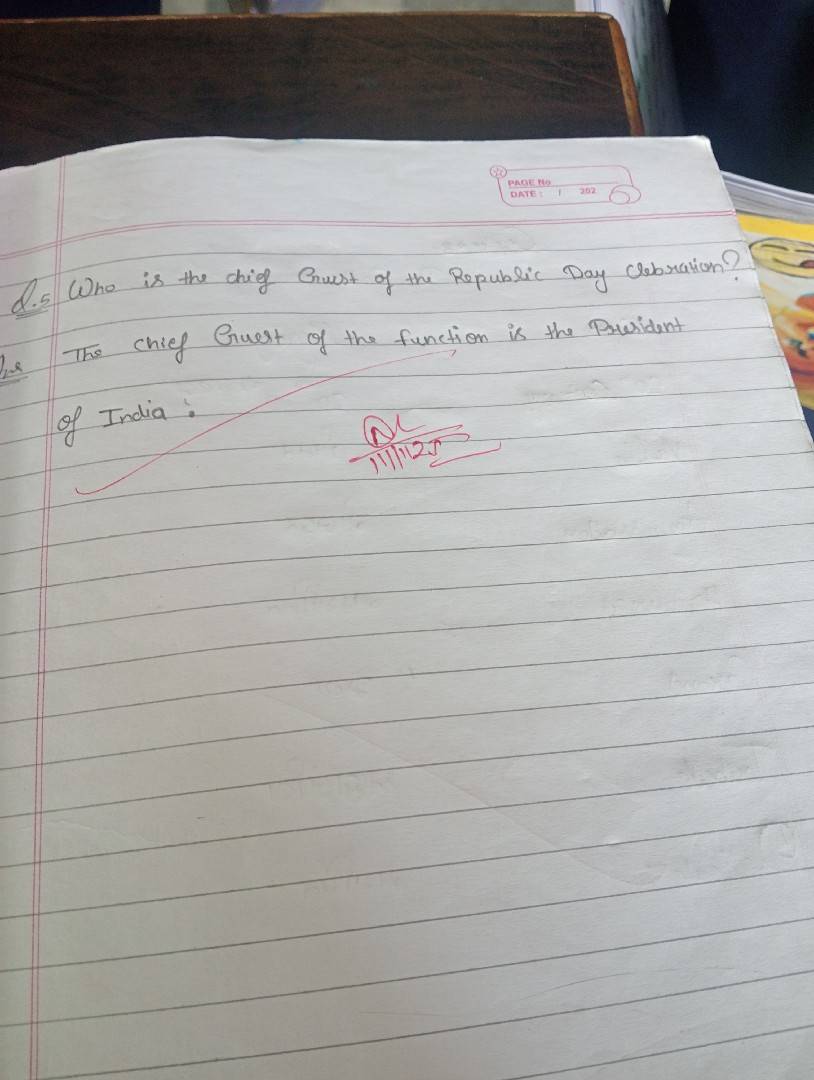 PAGE No
DATE : / 202
Q.5 Who is the chief Guest of the Republic Day Clebration?
The chief Guest of the function is the President
of India :
11/11/25